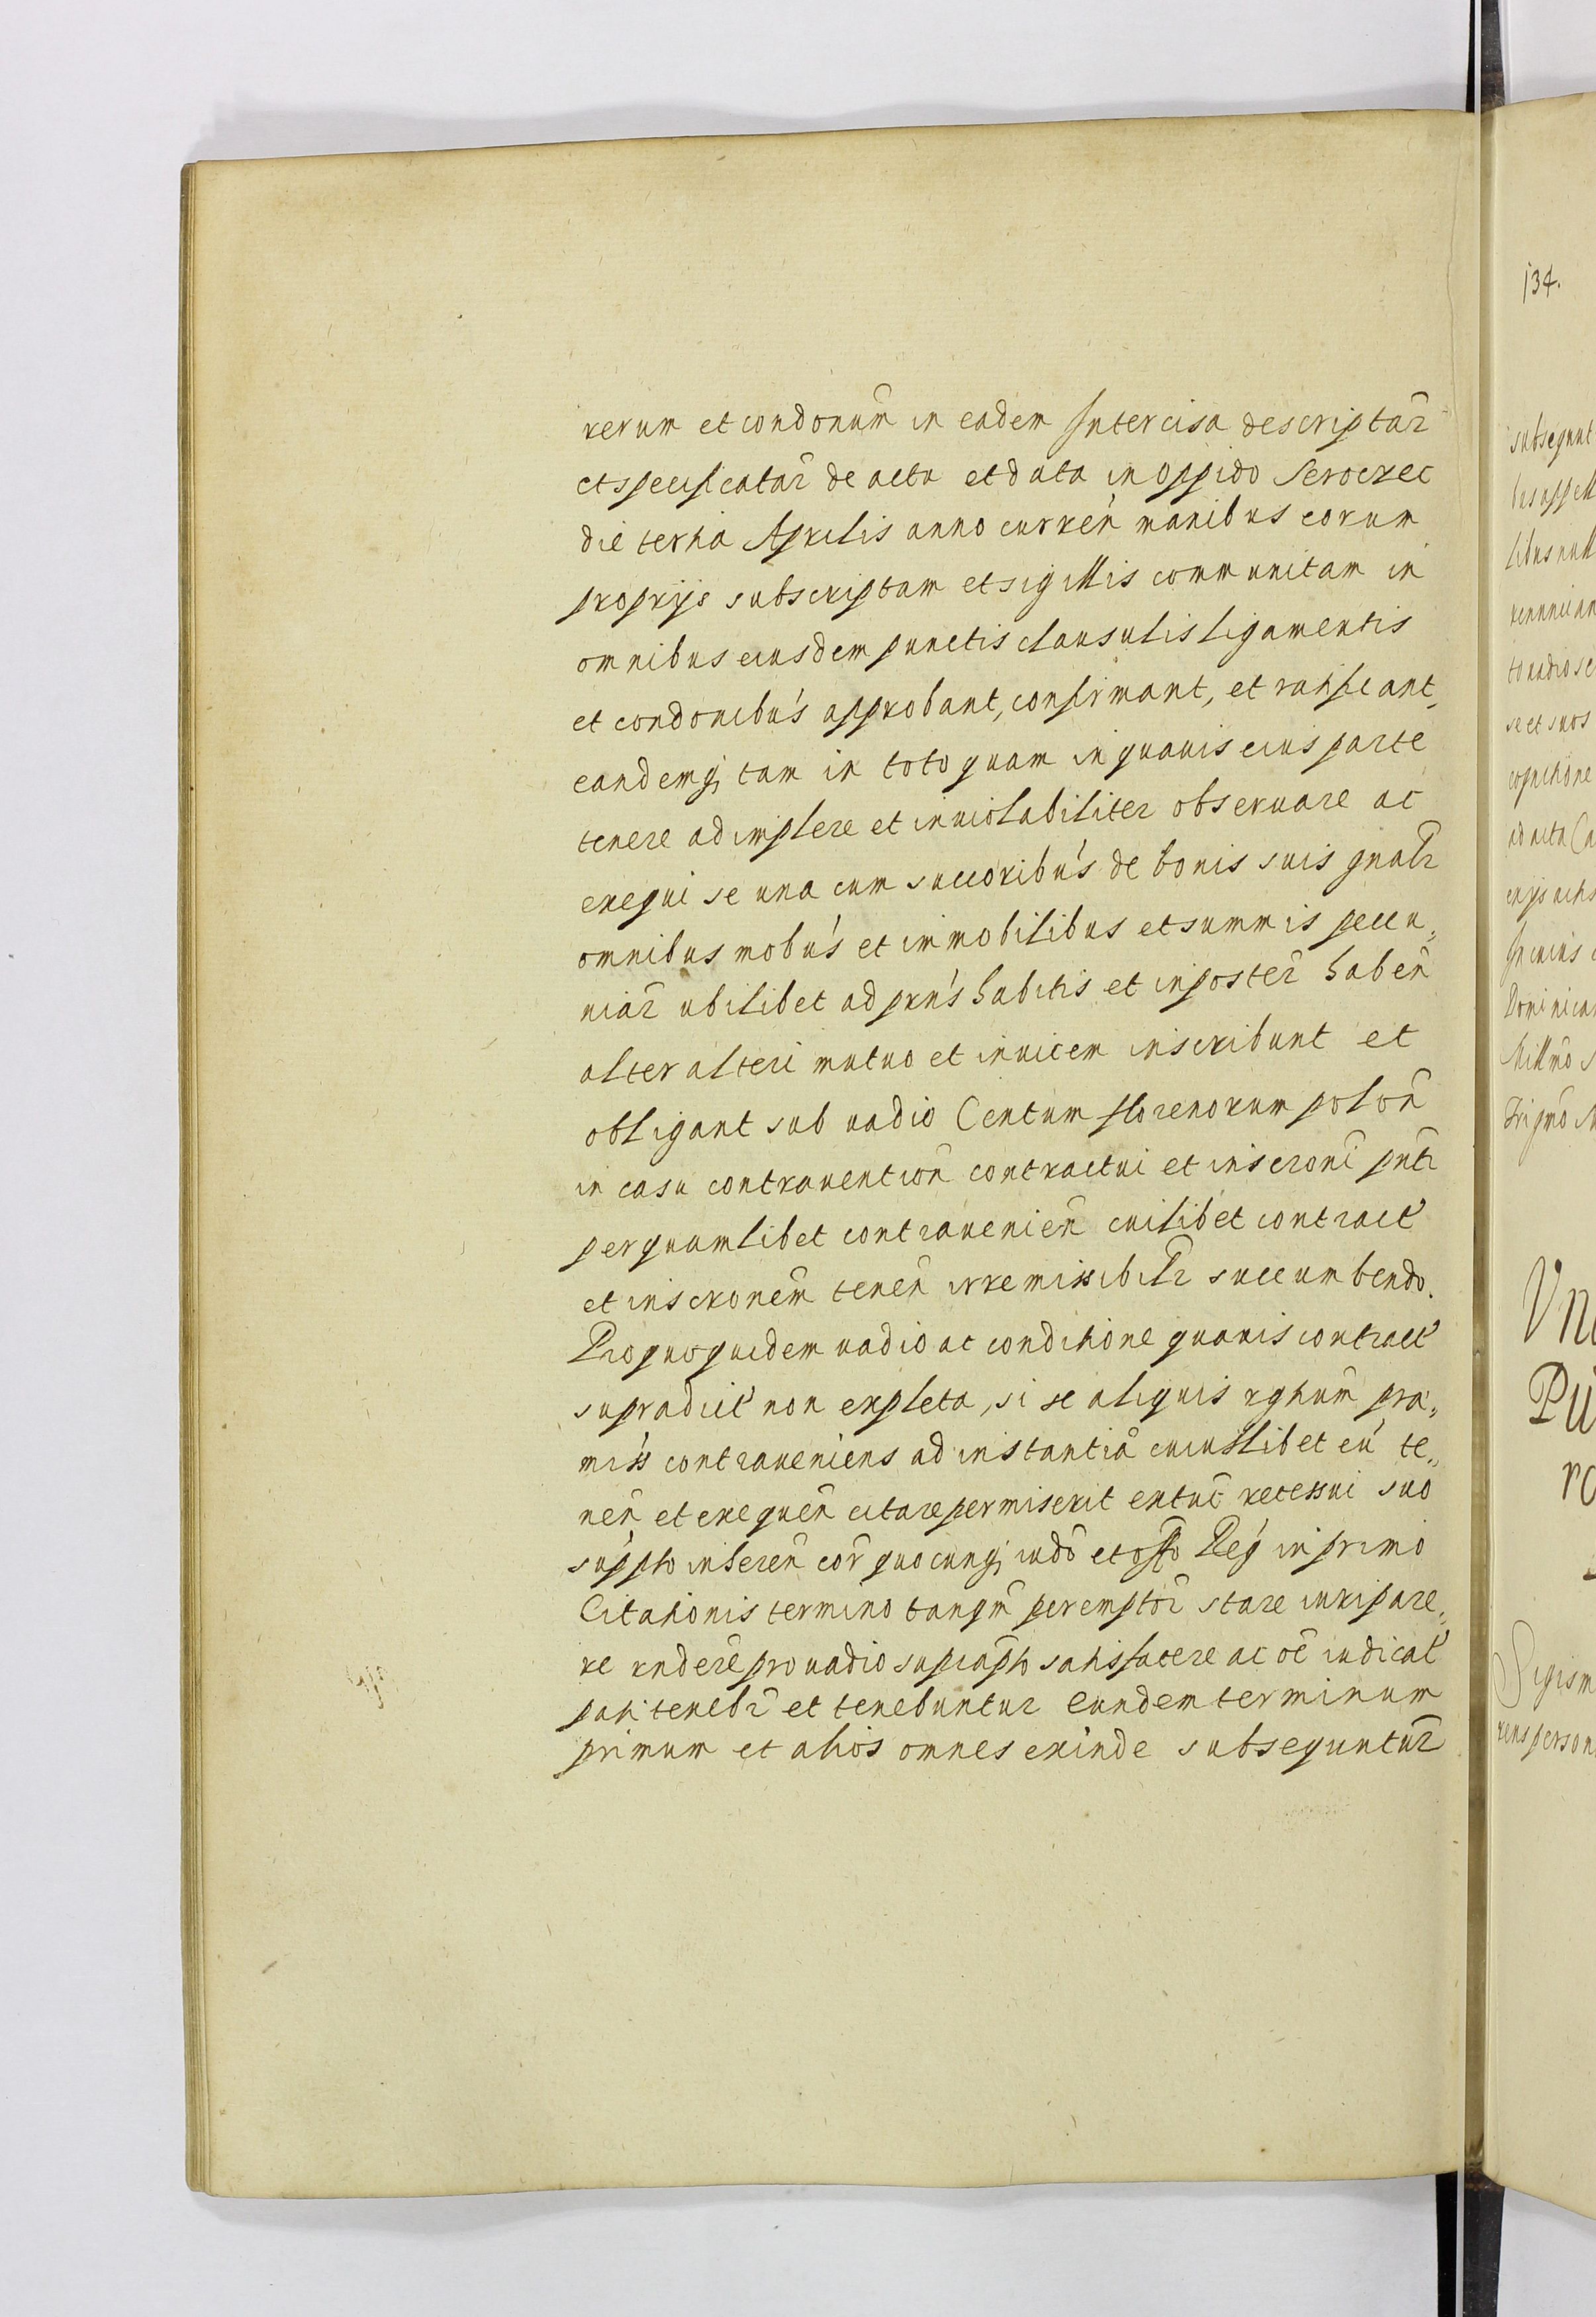 rerum et condonum̃ in eadem Intercisa descriptar̃
et specificatar̃ de actu et data in Oppido Seroczec
die tertia Aprilis anno curreñ manibus eorum
proprijs subscriptam et sigillis communitam in
omnibus eiusdem punctis clausulis ligamentis
et condonibus approbant, confirmant, et ratificant,
eandemq; tam in toto quam in quauis eius parte
tenere adimplere et inuiolabiliter obseruare ac
exequi se una cum succoribus de bonis suis gnalr̃
omnibus mobus et immobilibus et summis pecu„
niar̃ ubilibet ad prns habitis et in poster̃ habeñ
alter alteri mutuo et inuicem inscribunt et
obligant sub vadio Centum florenorum poloñ
in casu contrauentioñ contractui et inscroni pnti
per quamlibet contraueniẽn cuilibet contract
et inscronem̃ teneñ irremissibilr̃ succumbendo.
Pro quo quidem vadio ac conditione quauis contract
supradict non expleta, si se aliquis rghum̃ prae„
miss contraueniens ad instantiã cuiuslibet eũ te„
neñ et exequeñ citare permiserit extunc recessui suo
suppto inhereñ cor̃ quocunq; iudo et offo Reg in primo
Citationis termino tanqm̃ peremptor̃ stare iuri pare„
re rndere pro vadio supraspto satisfacere ac oẽ iudicat
pati tenebr̃ et tenebuntur Eundem terminum
primum et alios omnes exinde subsequuntur̃
134.
subsequut
Vn
Pu
ro
Sigism
rens person